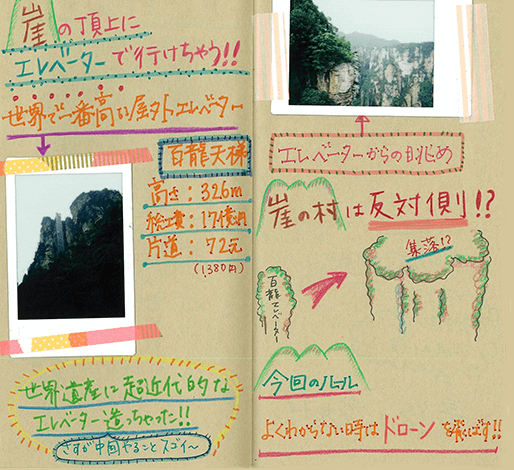 崖の頂上に
エレベーターで行けちゃう!!
世界で一番高い屋外エレベーター
百龍天梯
高さ：326m
総工費：17億円
片道：72元
(1380円)
世界遺産に超近代的な
エレベーター造っちゃった!!
さすが中国やることスゴイ〜
エレベーターからの眺め
崖の村は反対側!?
集落!?
百龍エレベーター
今回のルール
よくわからない時はドローンを飛ばす!!